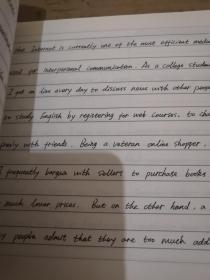 the Internet is currently one of the most efficient mediu
used for interpersonal communication. As a college studen
I get on line every day to discuss news with other peop
to study English by registering for web courses, to cha
freely with friends. Being a veteran online shopper,
I frequently bargain with sellers to purchase books
much lower prices. But on the other hand, a
people admit that they are too much add